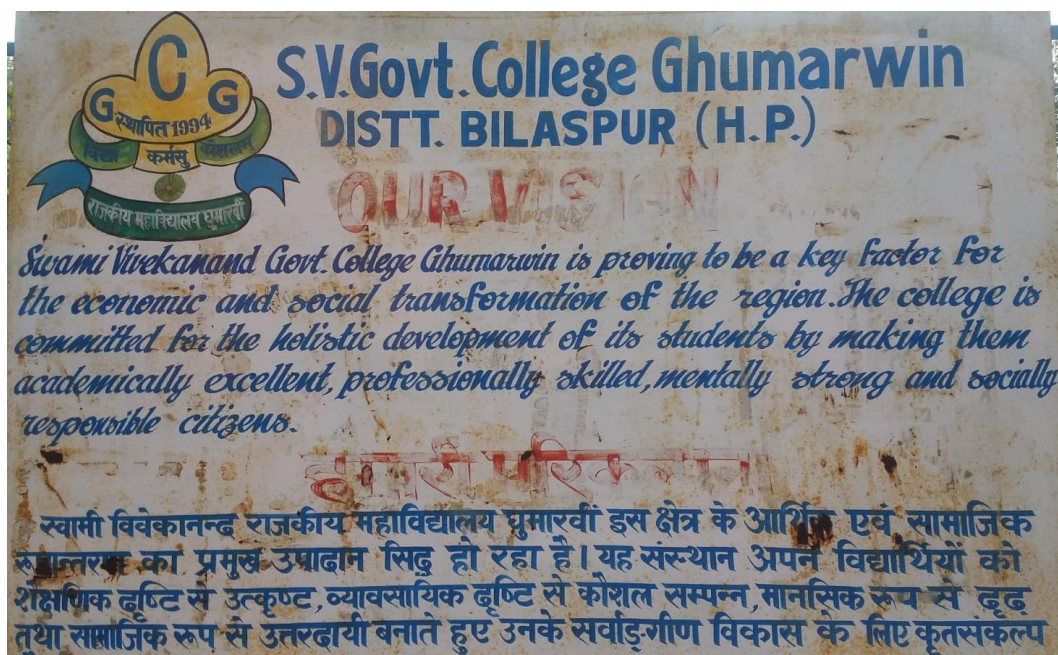 C
G G
स्थापित 1994
विद्या कर्मसु कौशलम
राजकीय महाविद्यालय घुमारवीं
S.V.Govt.College Ghumarwin
DISTT. BILASPUR (H.P.)
OUR VISION
Swami Vivekanand Govt. College Ghumarwin is proving to be a key factor for
the economic and social transformation of the region. The college is
committed for the holistic development of its students by making them
academically excellent, professionally skilled, mentally strong and socially
responsible citizens.
हमारी परिकल्पना
स्वामी विवेकानन्द राजकीय महाविद्यालय घुमारवीं इस क्षेत्र के आर्थिक एवं सामाजिक
रूपान्तरण का प्रमुख उपादान सिद्ध हो रहा है। यह संस्थान अपने विद्यार्थियों को
शैक्षणिक दृष्टि से उत्कृष्ट, व्यावसायिक दृष्टि से कौशल सम्पन्न, मानसिक रूप से दृढ़
तथा सामाजिक रूप से उत्तरदायी बनाते हुए उनके सर्वाङ्गीण विकास के लिए कृतसंकल्प